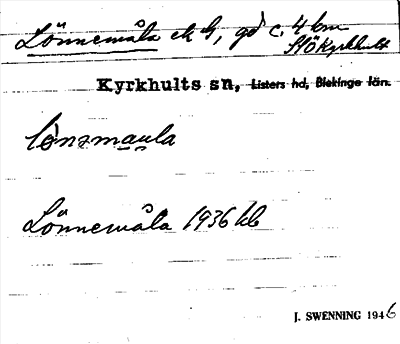 Lönnemåla ek b, gd c. 4 km
StÖ Kyrkhult
Kyrkhults sn, Listers hd, Blekinge län.
lönsmaula
Lönnemåla 1936 kb
J. SWENNING 1946